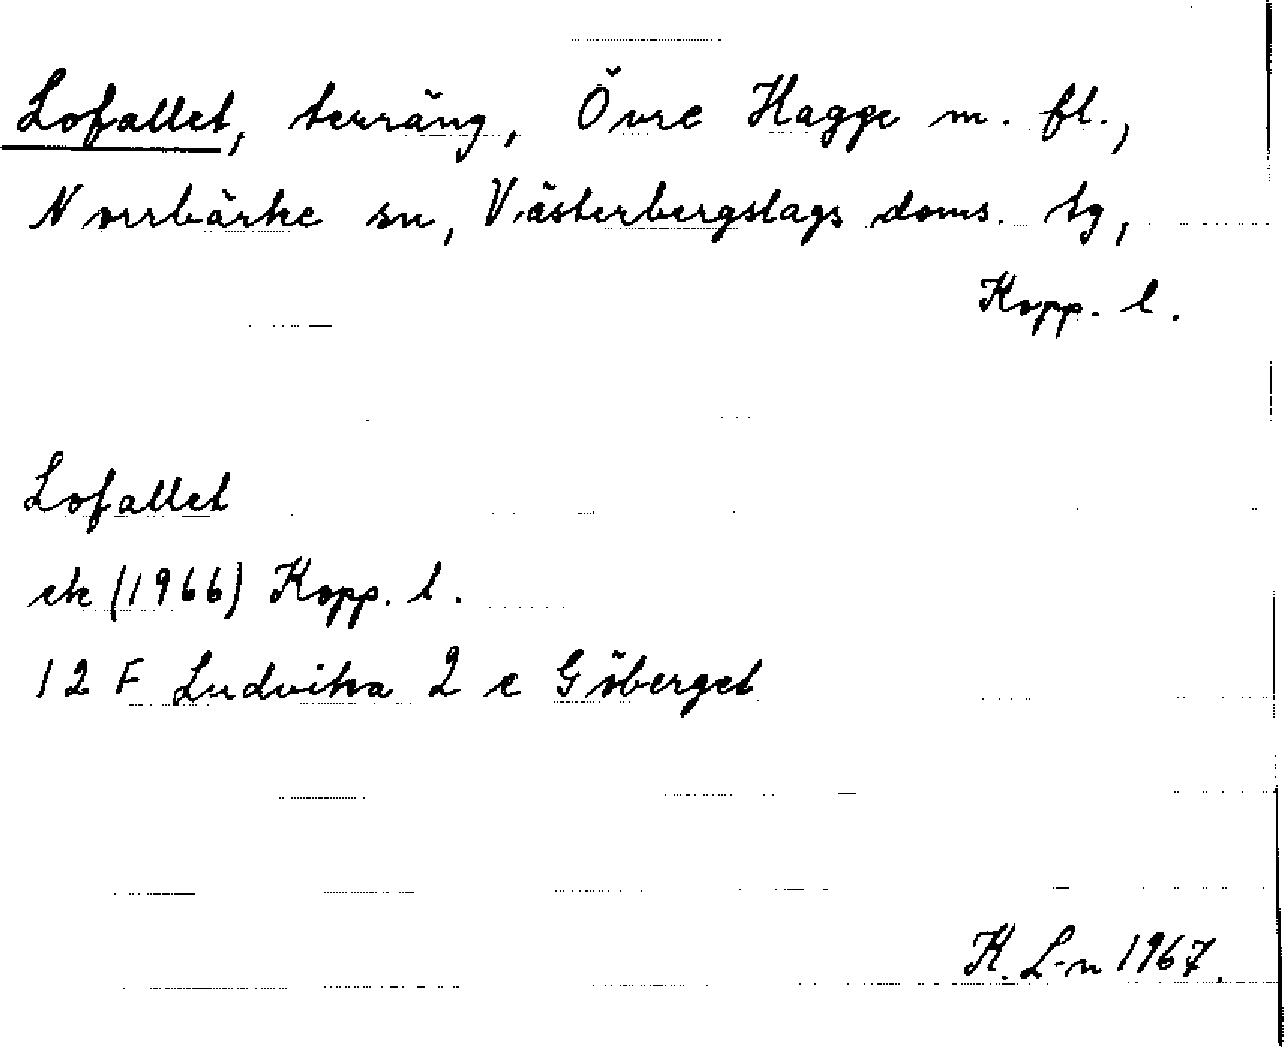 Lofallet, terräng, Övre Hagge m. fl.,
Norrbärke sn, Västerbergslags doms. tg,
Kopp. l.
Lofallet
ek (1966) Kopp. l.
12 F Ludvika 2 e Göberget
K. L-n 1967.